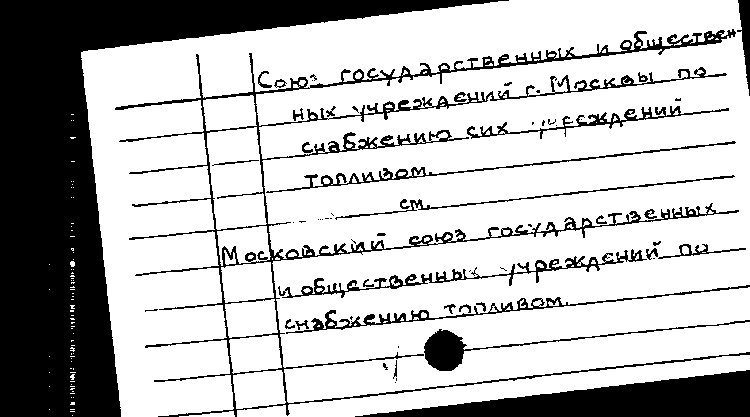 Союз государственных и обществен-
ных учреждений г. Москвы по
снабжению сих учреждений
топливом.
см.
Московский союз государственных
и общественных учреждений по
снабжению топливом.